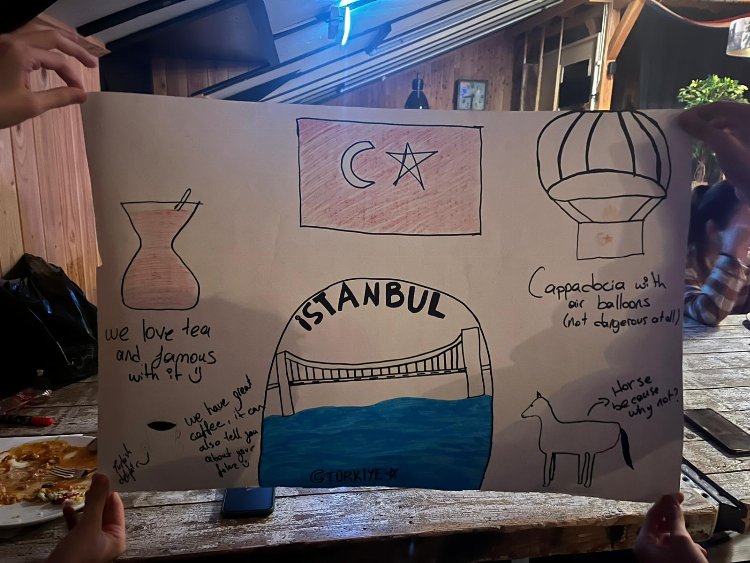 iSTANBUL
©TÜRKİYE☆
we love tea
and famous
with it :)
we have great
coffee, it can
also tell you
about your
future :)
Cappadocia with
air balloons
(not dangerous at all)
Horse
because
why not?